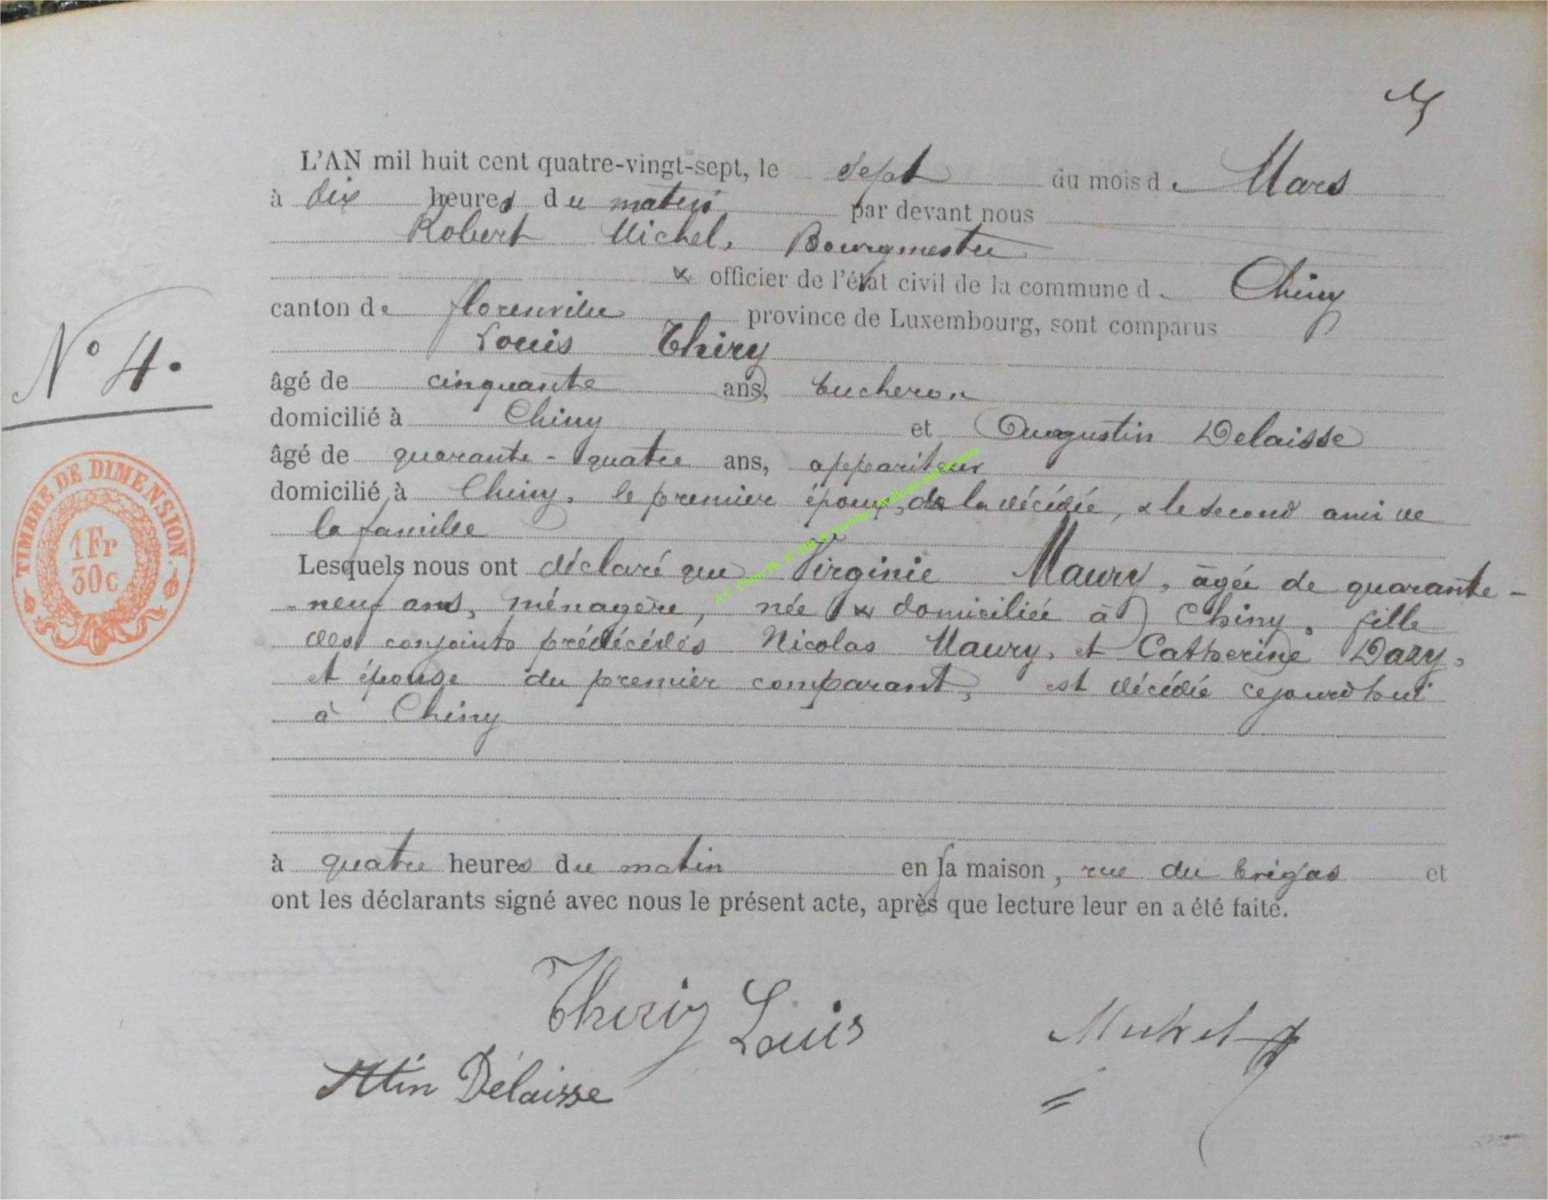 L'AN mil huit cent quatre-vingt-sept, le sept du mois de Mars
à dix heures du matin par devant nous
Robert Michel, Bourgmestre
& officier de l'état civil de la commune de Chiny
canton de florenville province de Luxembourg, sont comparus
Louis Thiry
âgé de cinquante ans, bucheron
domicilié à Chiny et Augustin Delaisse
âgé de quarante-quatre ans, appariteur
domicilié à Chiny, le premier époux de la décédée, & le second ami de
la famille
Lesquels nous ont déclaré que Virginie Maury, âgée de quarante-
neuf ans, ménagère, née & domiciliée à Chiny, fille
des conjoints prédécédés Nicolas Maury, et Catherine Dazy,
et épouse du premier comparant, est décédée cejourd'hui
à Chiny
à quatre heures du matin en sa maison, rue du et
ont les déclarants signé avec nous le présent acte, après que lecture leur en a été faite.
N° 4.
TIMBRE DE DIMENSION
1Fr
30c
Thiriy Louis
Michel
Atin Délaisse